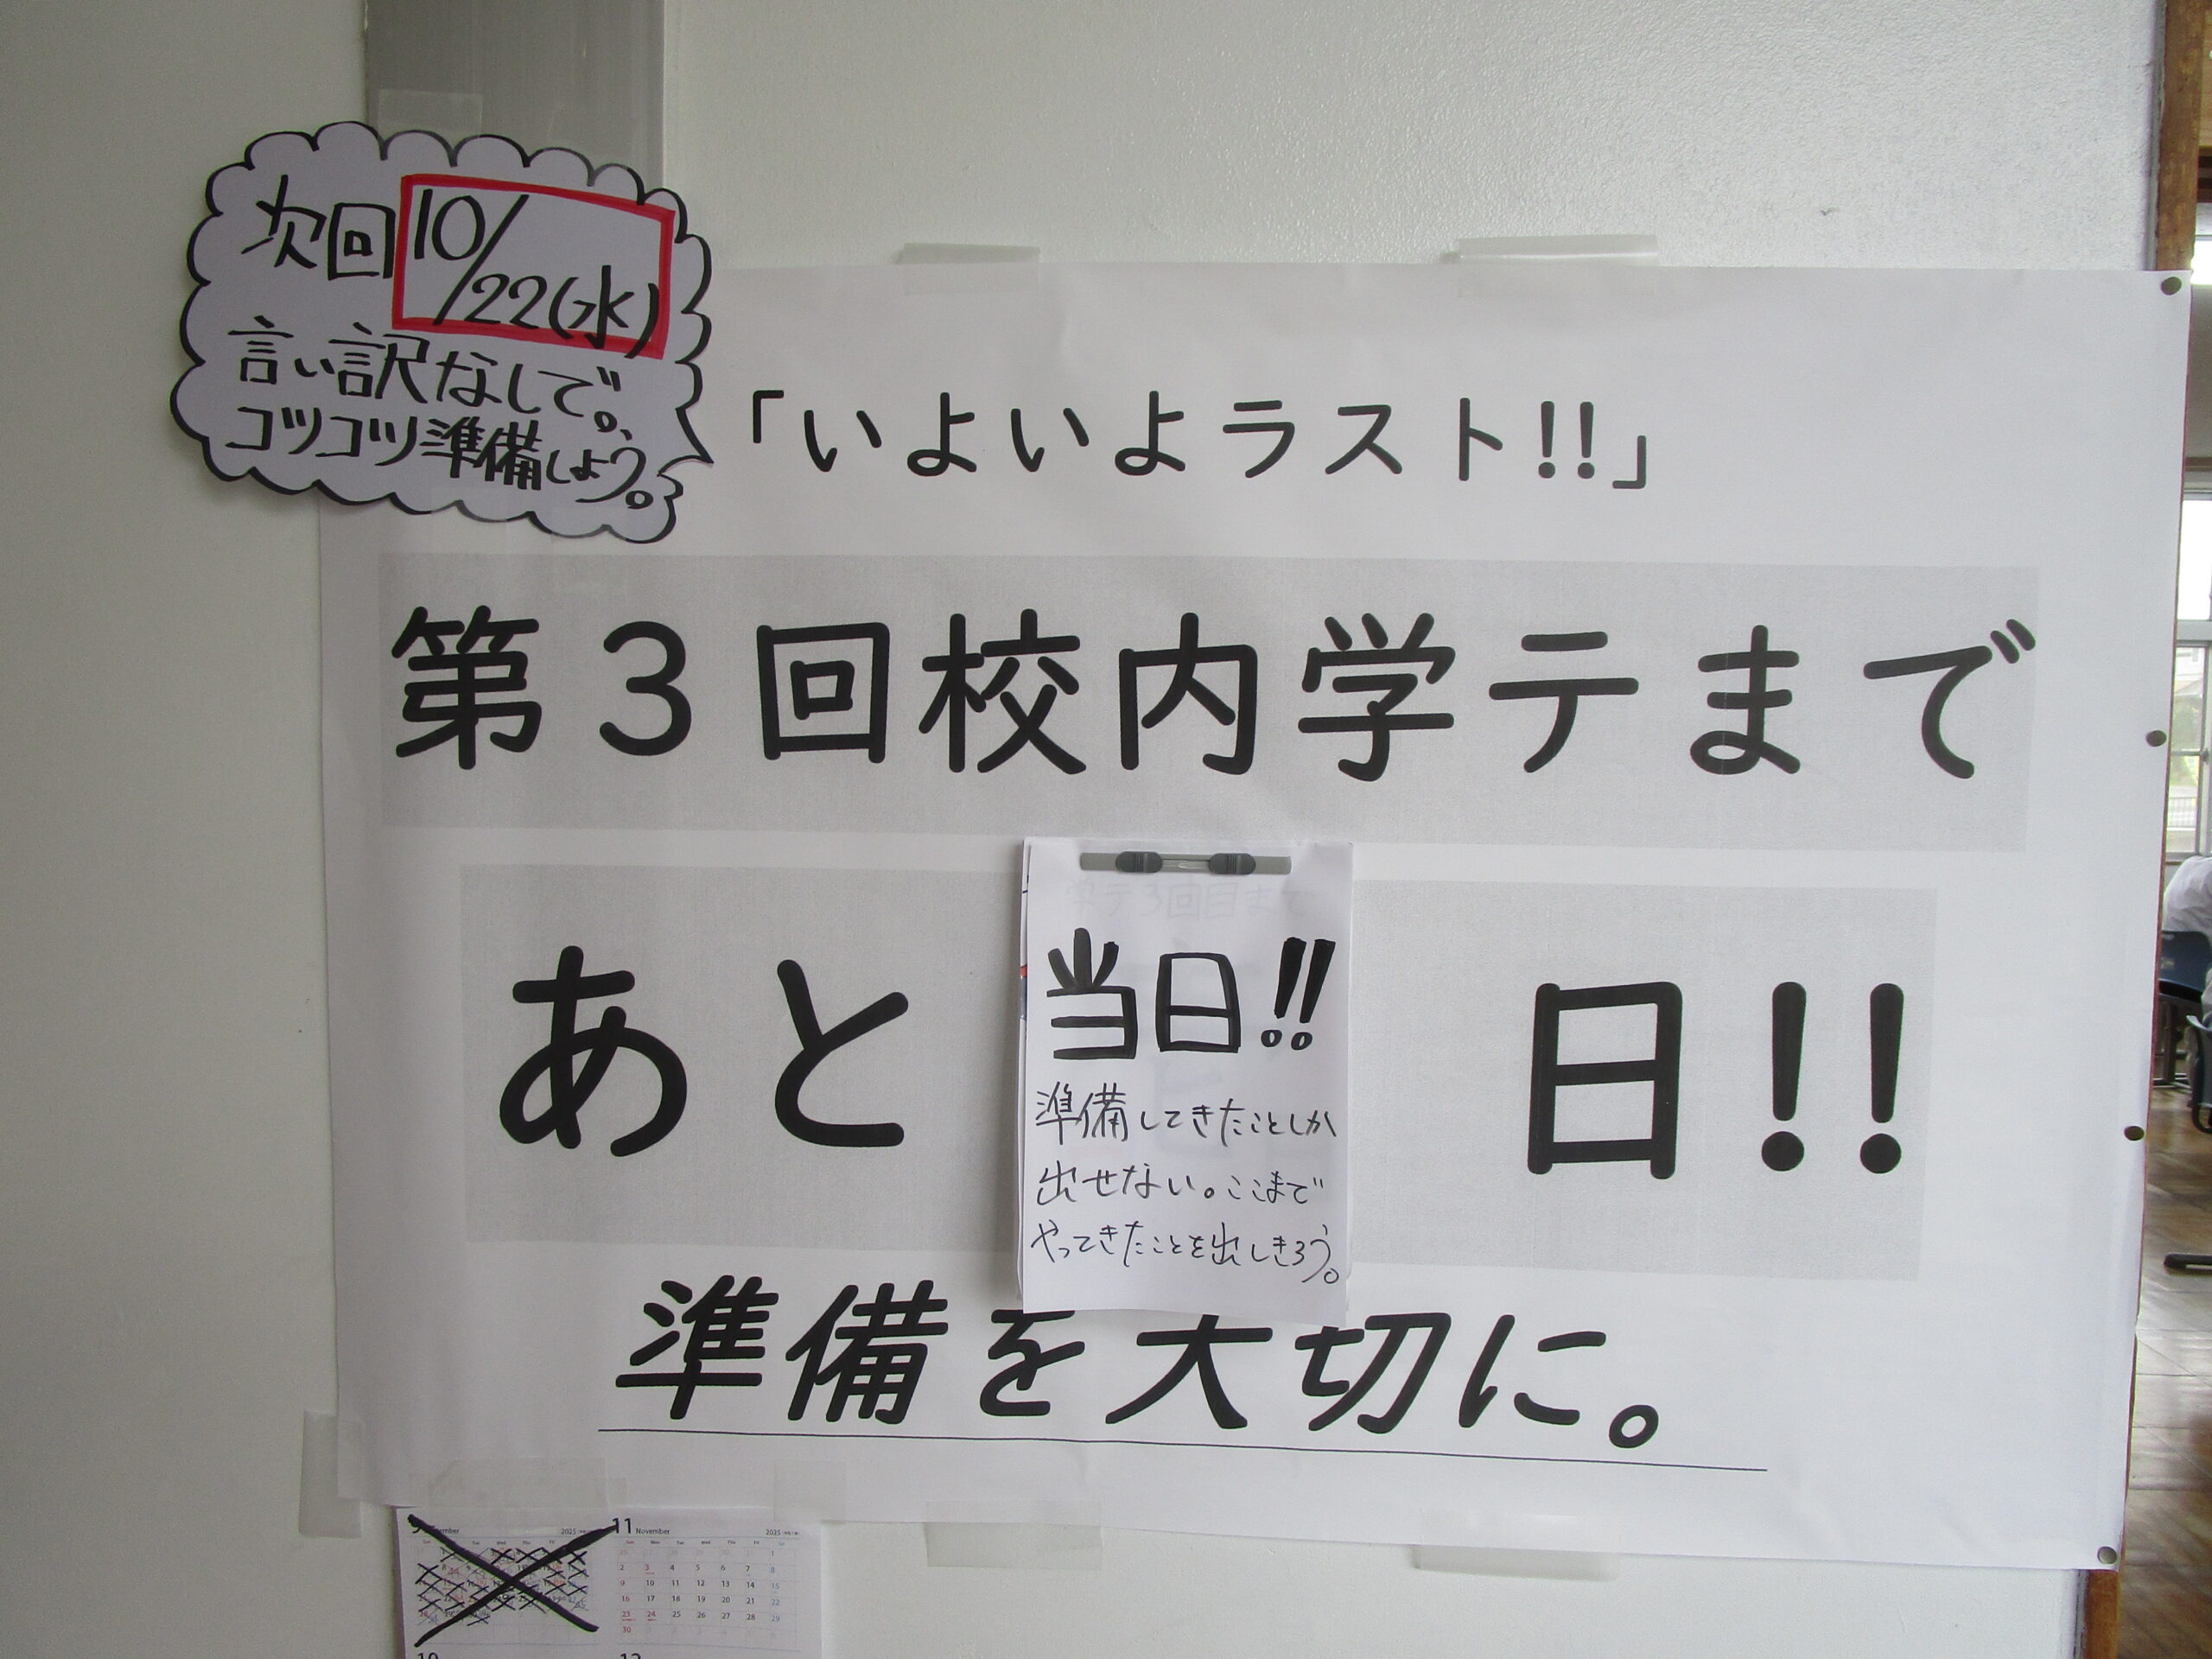 次回 10/22(水)
言い訳なしで。
コツコツ準備しよう。
「いよいよラスト!!」
第３回校内学テまで
学テ3回目まで
あと
当日!!
準備してきたことしか
出せない。ここまで
やってきたことを出しきろう。
日!!
準備を大切に。
11 November 2025
1
2 3 4 5 6 7 8
9 10 11 12 13 14 15
16 17 18 19 20 21 22
23 24 25 26 27 28 29
30